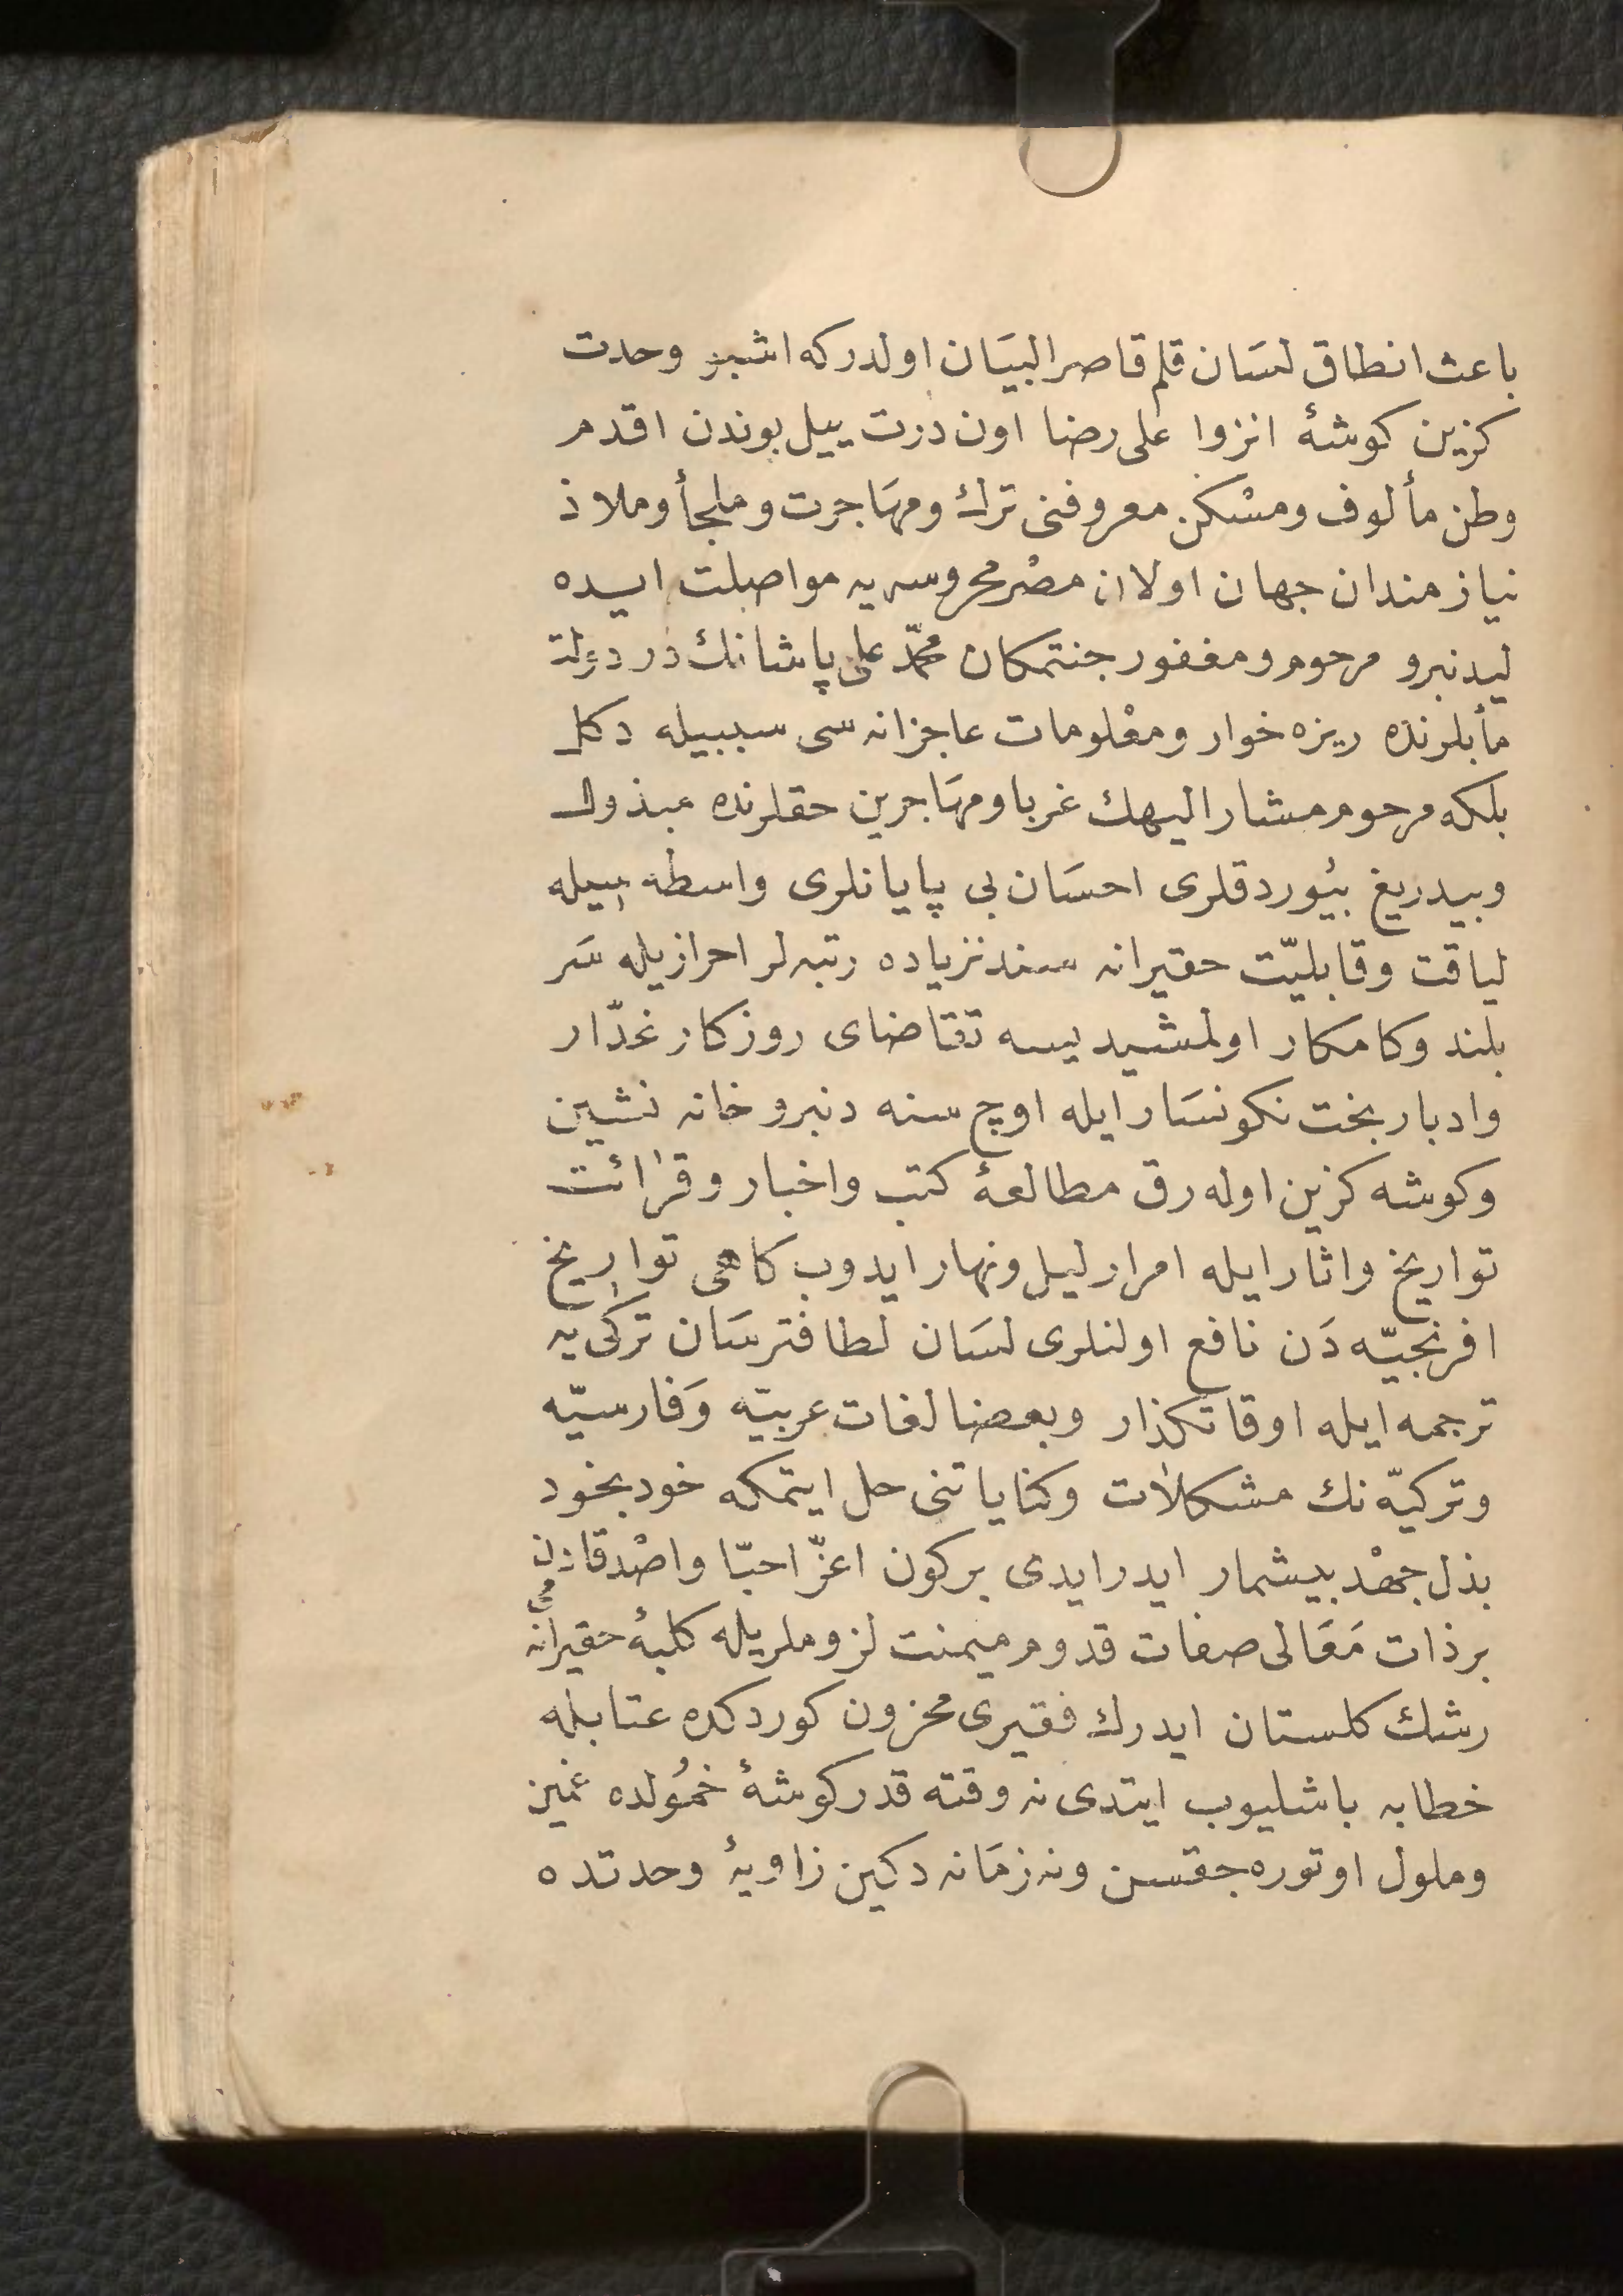 باعث انطاق لسَان قلم قاصر البيَان اولدركه اشبو وحدت
كزين كوشهٔ انزوا على رضا اون درت ييل بوندن اقدم
وطن مألوف ومسْكن معروفنى ترك ومهَاجرت وملجأ وملاذ
نيازمندان جهان اولان مصْر محروسه يه مواصلت ايده
ليدنبرو مرحوم ومغفور جنتمكان محمّد على پاشانك در دولت
مأبلرنده ريزه خوار ومعْلومات عاجزانه سى سببيله دكل
بلكه مرحوم مشار اليهك غربا ومهَاجرين حقلرنده مبذول
وبيدريغ بيُوردقلرى احسَان بى پايانلرى واسطه سيله
لياقت وقابليّت حقيرانه سندنزياده رتبه لر احرازيله سَر
بلند وكامكار اولمشيديسه تقاضاى روزكار غدّار
وادبار بخت نكونسَار ايله اوچ سنه دنبرو خانه نشين
وكوشه كزين اوله رق مطالعهٔ كتب واخبار وقرائت
تواريخ واثار ايله امرار ليل ونهار ايدوب كاهى تواريخ
افرنجيّه دَن نافع اولنلرى لسَان لطافترسَان تركى يه
ترجمه ايله اوقاتكذار وبعضا لغات عربيّه وَفارسيّه
وتركيّه نك مشكلات وكناياتنى حل ايتمكه خود بخود
بذل جهْد بيشمار ايدر ايدى بركون اعزّ احبّا واصْدقادن
بر ذات مَعَالى صفات قدوم ميمنت لزوملريله كلبهٔ حقيرانه مى
رشك كلستان ايدرك فقيرى محزون كوردكده عتابله
خطابه باشليوب ايتدى نه وقته قدر كوشهٔ خمُولده غمين
وملول اوتوره جقسن ونه زمَانه دكين زاويهٔ وحدتده